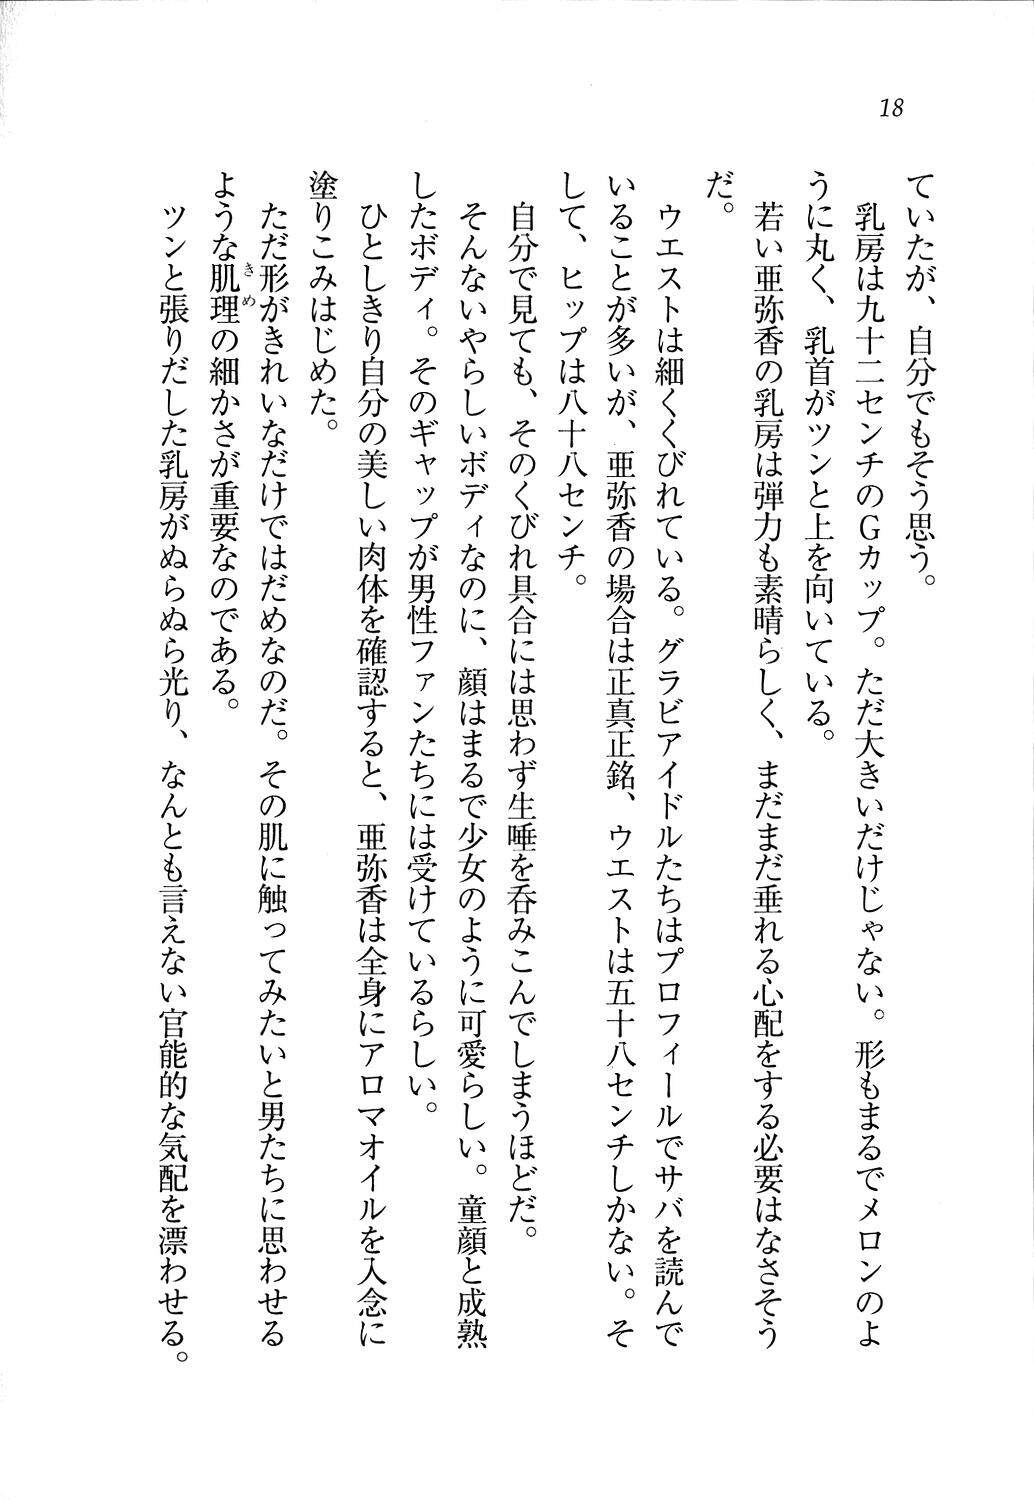 18
ていたが、自分でもそう思う。
乳房は九十二センチのGカップ。ただ大きいだけじゃない。形もまるでメロンのよ
うに丸く、乳首がツンと上を向いている。
若い亜弥香の乳房は弾力も素晴らしく、まだまだ垂れる心配をする必要はなさそう
だ。
ウエストは細くくびれている。グラビアイドルたちはプロフィールでサバを読んで
いることが多いが、亜弥香の場合は正真正銘、ウエストは五十八センチしかない。そ
して、ヒップは八十八センチ。
自分で見ても、そのくびれ具合には思わず生唾を呑みこんでしまうほどだ。
そんないやらしいボディなのに、顔はまるで少女のように可愛らしい。童顔と成熟
したボディ。そのギャップが男性ファンたちには受けているらしい。
ひとしきり自分の美しい肉体を確認すると、亜弥香は全身にアロマオイルを入念に
塗りこみはじめた。
ただ形がきれいなだけではだめなのだ。その肌に触ってみたいと男たちに思わせる
ような肌理きめの細かさが重要なのである。
ツンと張りだした乳房がぬらぬら光り、なんとも言えない官能的な気配を漂わせる。